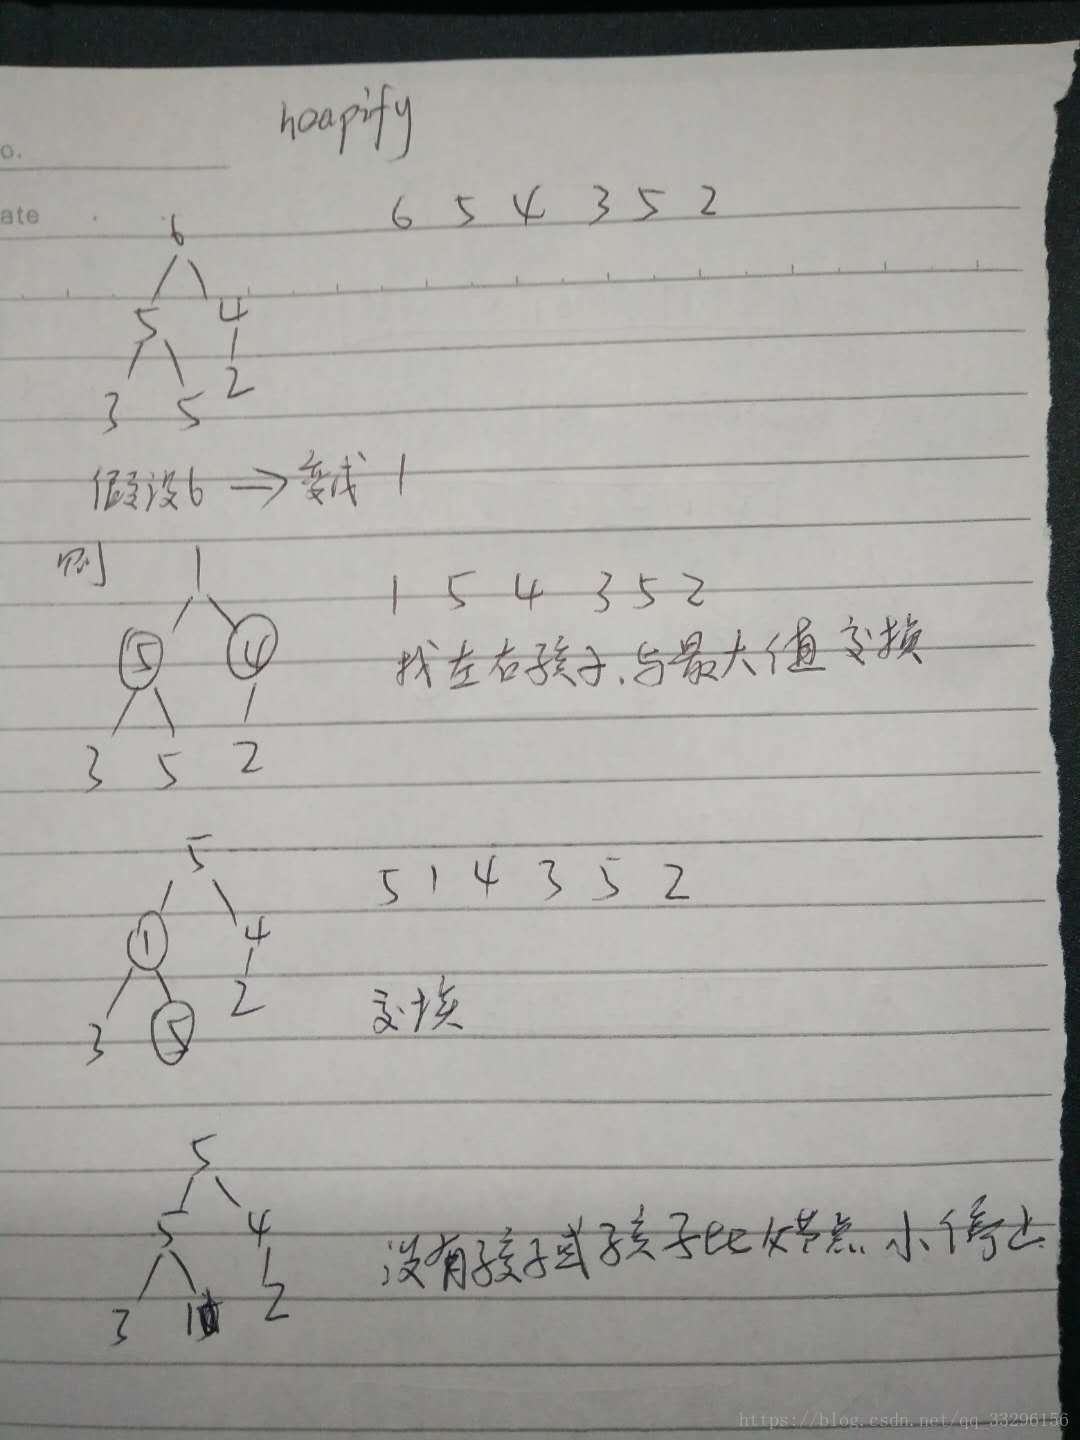 hoapify
o.
ate
6 5 4 3 5 2
6
5 4
3 5 2
假设6 → 变成 1
则
1
1 5 4 3 5 2
5 4
找左右孩子,与最大值交换
3 5 2
5
5 1 4 3 5 2
1 4
2
交换
3 5
5
5 4
没有孩子或孩子比父节点小停止
3 1 2
https://blog.csdn.net/qq_33296156